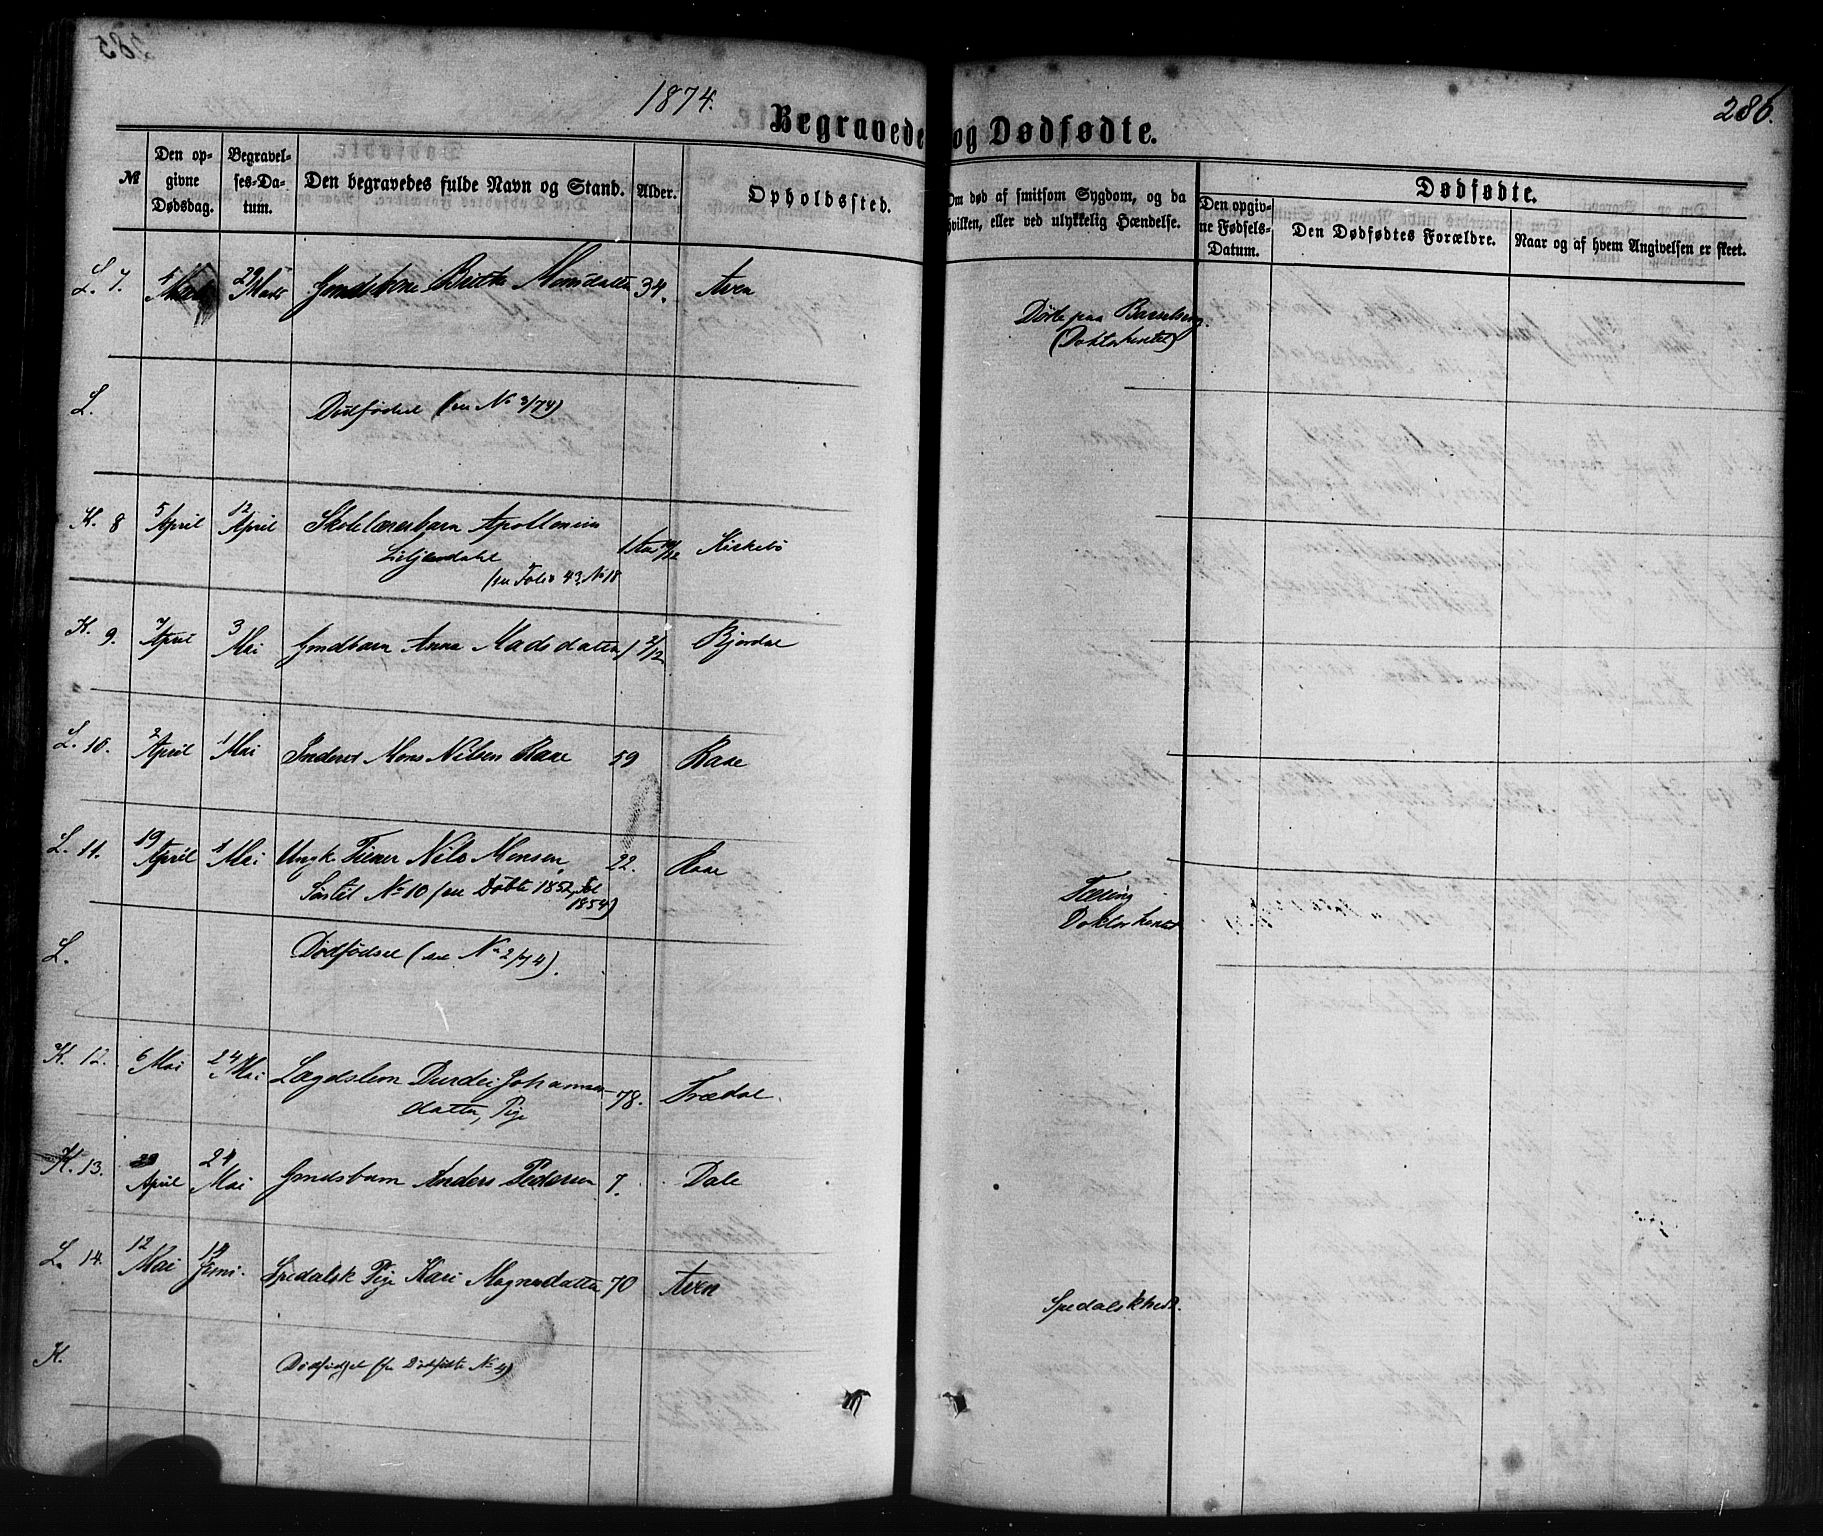 1874.
286.
Begravede og Dødfødte.
№
Den op-
givne
Dødsdag.
Begravel-
ses-Da-
tum.
Den begravedes fulde Navn og Stand.
Alder.
Opholdssted.
Om død af smitsom Sygdom, og da
hvilken, eller ved ulykkelig Hændelse.
Dødfødte.
Den opgiv-
ne Fødsels-
Datum.
Den Dødfødtes Forældre.
Naar og af hvem Angivelsen er skeet.
L. 7. 29 Marts Gmdskone Britta Monsdatter 34. Aven
Døde paa Barselseng.
(Doktorhentet)
L. Dødfødsel (se No 3/74)
K. 8 5 April 12 April Skolelærerbarn Apollonius
Liljendahl 1 Aar 10/12 Kirkebø
(se Folio 43. No 18
K. 9. 7 April 3 Mai Gmdbarn Anna Madsdatter 1 2/12 Bjordal
L. 10. 2 April 1 Mai Inderst Mons Nilsen Raae 59 Raae
L. 11. 19 April 1 Mai Ungk. Tiener Nils Monsen 22. Raae
Søn til No 10 (se Døbte 1852, Fol
1854)
Tæring
Doktorhentet
L. Dødfødsel (se No 2/74).
K. 12. 6 Mai 24 Mai Lægdslem Durdei Johannes-
datter, Pige 78. Trædal.
K. 13. April 24 Mai Gmdsbarn Anders Pedersen 7. Dale
L. 14. 12 Mai 19 Juni. Spedalsk Pige Kari Magnesdatter 70 Aven
Spedalskhed.
K. Dødfødsel (se Dødfødte No 4)